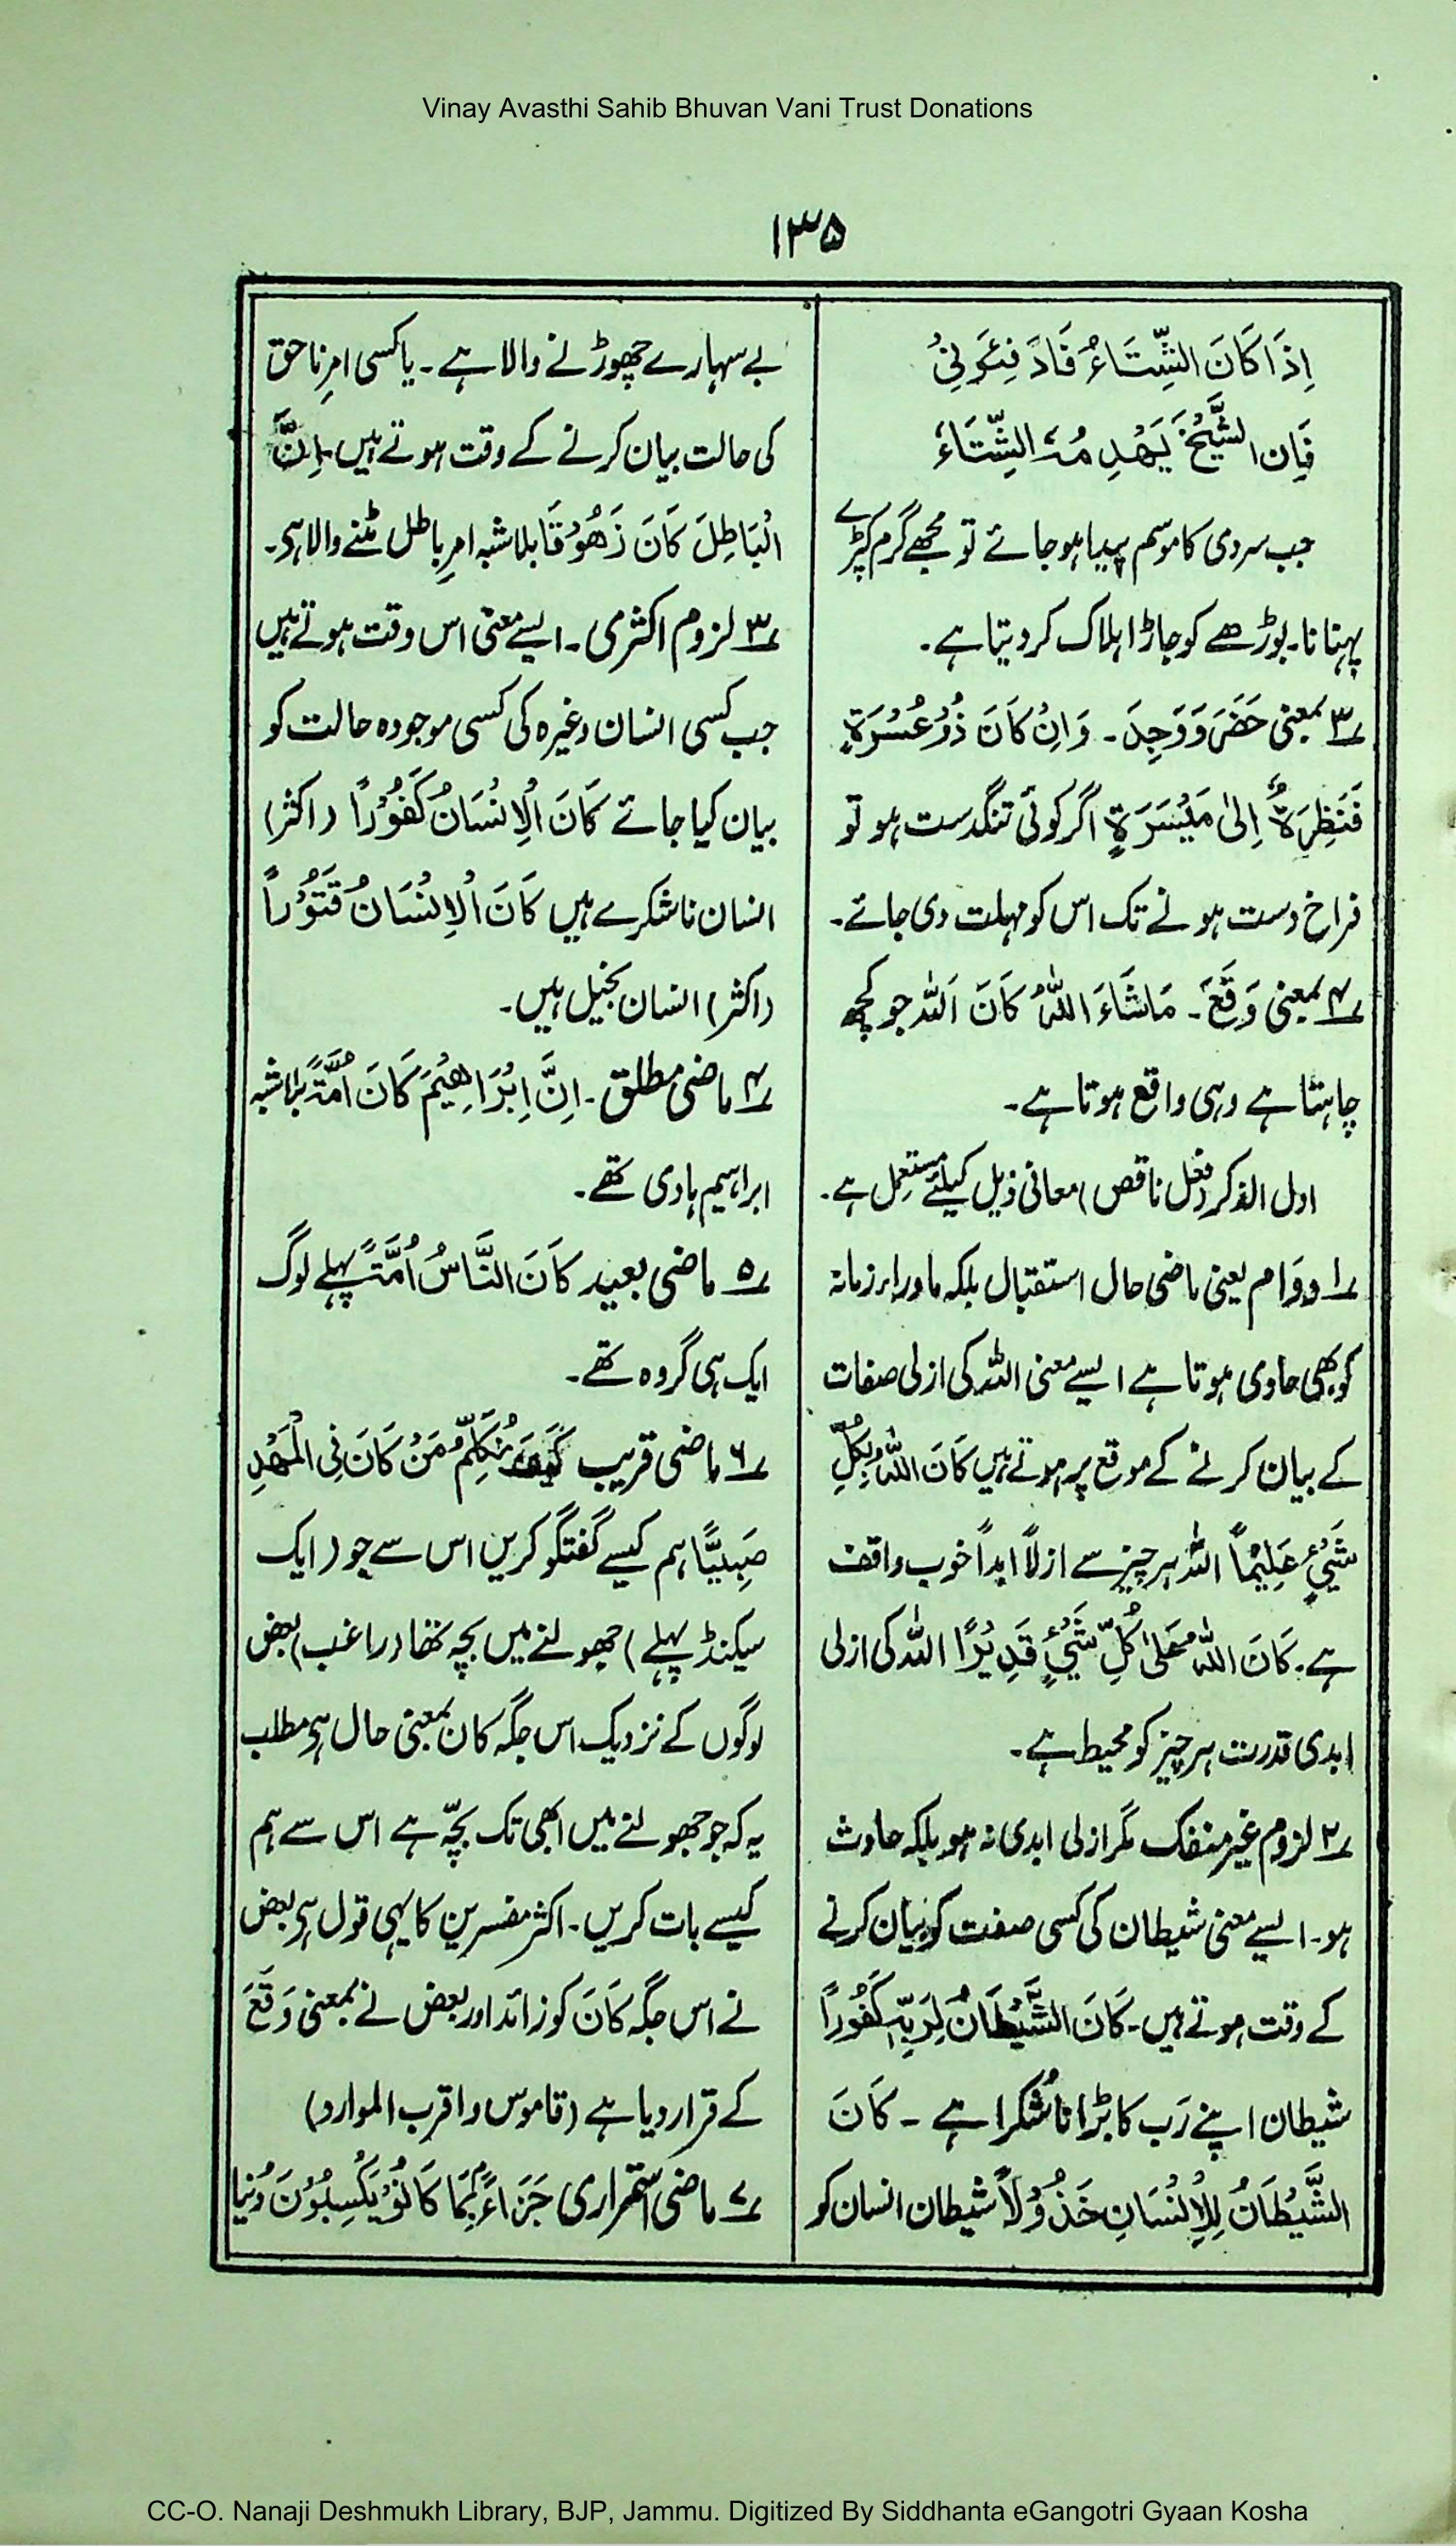 Vinay Avasthi Sahib Bhuvan Vani Trust Donations
۱۳۵
اِذَا كَانَ الشِّتَاءُ فَادْ فِئُونِیْ
فَاِن الشَّیْخَ یَهْدِ مُہُ الشِّتَاءُ
جب سردی کا موسم پیدا ہو جائے تو مجھے گرم کپڑے
پہنانا۔ بوڑھے کو جاڑا ہلاک کر دیتا ہے۔
۳؎ بمعنی حَضَرَ وَوَجِدَ۔ وَاِنْ كَانَ ذُوْ عُسْرَةٍ
فَنَظِرَةٌ اِلیٰ مَیْسَرَةٍ اگر کوئی تنگدست ہو تو
فراخ دست ہونے تک اس کو مہلت دی جائے۔
۴؎ بمعنی وَقَعَ۔ مَاشَاءَ اللّٰہُ كَانَ اَللّٰہ جو کچھ
چاہتا ہے وہی واقع ہوتا ہے۔
اول الذکر (فعل ناقص) معانی ذیل کیلئے مستعمل ہے۔
۱؎ دوام یعنی ماضی حال استقبال بلکہ ماوراء زمانہ
کو بھی حاوی ہوتا ہے ایسے معنی اللہ کی ازلی صفات
کے بیان کرنے کے موقع پر ہوتے ہیں كَانَ اللّٰہُ بِكُلِّ
شَیْءٍ عَلِیْمًا اللہ ہر چیز سے ازلاً ابداً خوب واقف
ہے۔ كَانَ اللّٰہُ عَلیٰ كُلِّ شَیْءٍ قَدِیْرًا اللہ کی ازلی
ابدی قدرت ہر چیز کو محیط ہے۔
۲؎ لزوم غیر منفک مگر ازلی ابدی نہ ہو بلکہ حادث
ہو۔ ایسے معنی شیطان کی کسی صفت کو بیان کرنے
کے وقت ہوتے ہیں۔ كَانَ الشَّیْطَانُ لِرَبِّہٖ كَفُوْرًا
شیطان اپنے رَب کا بڑا ناشکرا ہے ۔ كَانَ
الشَّیْطَانُ لِلْاِنْسَانِ خَذُوْلًا شیطان انسان کو
بے سہارے چھوڑنے والا ہے۔ یا کسی امرِ ناحق
کی حالت بیان کرنے کے وقت ہوتے ہیں۔ اِنَّ
الْبَاطِلَ كَانَ زَهُوْقًا بلاشبہ امرِ باطل مٹنے والا ہی۔
۳؎ لزوم اکثری۔ ایسے معنی اس وقت ہوتے ہیں
جب کسی انسان وغیرہ کی کسی موجودہ حالت کو
بیان کیا جائے كَانَ الْاِنْسَانُ كَفُوْرًا (اکثر)
انسان ناشکرے ہیں كَانَ الْاِنْسَانُ قَتُوْراً
(اکثر) انسان بخیل ہیں۔
۴؎ ماضی مطلق۔ اِنَّ اِبْرَاهِیْمَ كَانَ اُمَّةً بلاشبہ
ابراہیم ہادی تھے۔
۵؎ ماضی بعید كَانَ النَّاسُ اُمَّةً پہلے لوگ
ایک ہی گروہ تھے۔
۶؎ ماضی قریب كَیْفَ نُكَلِّمُ مَنْ كَانَ فِی الْمَهْدِ
صَبِیًّا ہم کیسے گفتگو کریں اس سے جو (ایک
سیکنڈ پہلے) جھولنے میں بچہ تھا (راغب) بعض
لوگوں کے نزدیک اس جگہ کان بمعنی حال ہی مطلب
یہ کہ جو جھولنے میں ابھی تک بچّہ ہے اس سے ہم
کیسے بات کریں۔ اکثر مفسرین کا یہی قول ہی بعض
نے اس جگہ كَانَ کو زائد اور بعض نے بمعنی وَقَعَ
کے قرار دیا ہے (قاموس و اقرب الموارد)
۷؎ ماضی استمراری جَزَاءً بِمَا كَانُوْ یَكْسِبُوْنَ دُنیا
CC-O. Nanaji Deshmukh Library, BJP, Jammu. Digitized By Siddhanta eGangotri Gyaan Kosha